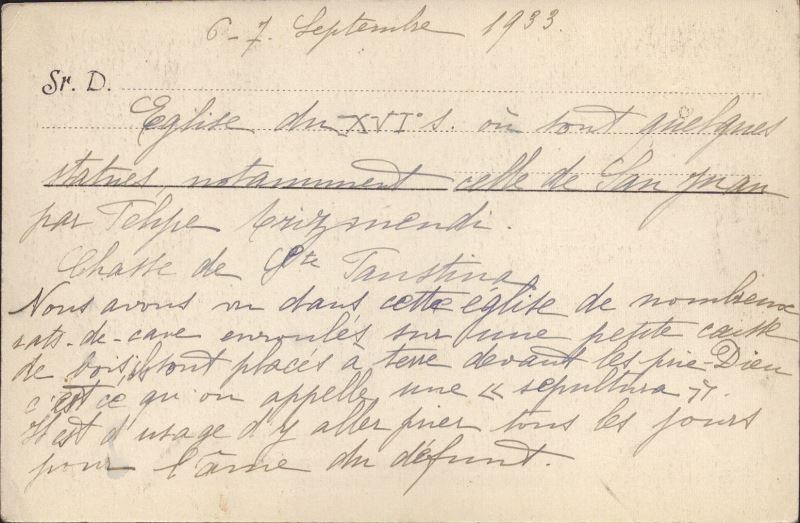 6-7. Septembre 1933
Sr. D.
Eglise du XVIe s. où sont quelques
statues, notamment celle de San Juan
par Felipe Arizmendi.
Chasse de Ste Faustina
Nous avons vu dans cette église de nombreux
rats-de-cave enroulés sur une petite caisse
de bois, ils sont placés à terre devant les prie-Dieu
c'est ce qu'on appelle une « sepultura ».
Il est d'usage d'y aller prier tous les jours
pour l'âme du défunt.